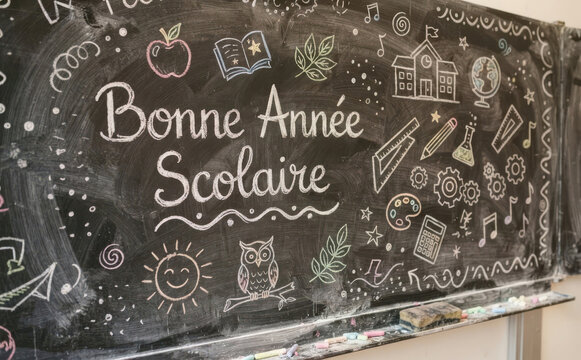 Bonne Année
Scolaire